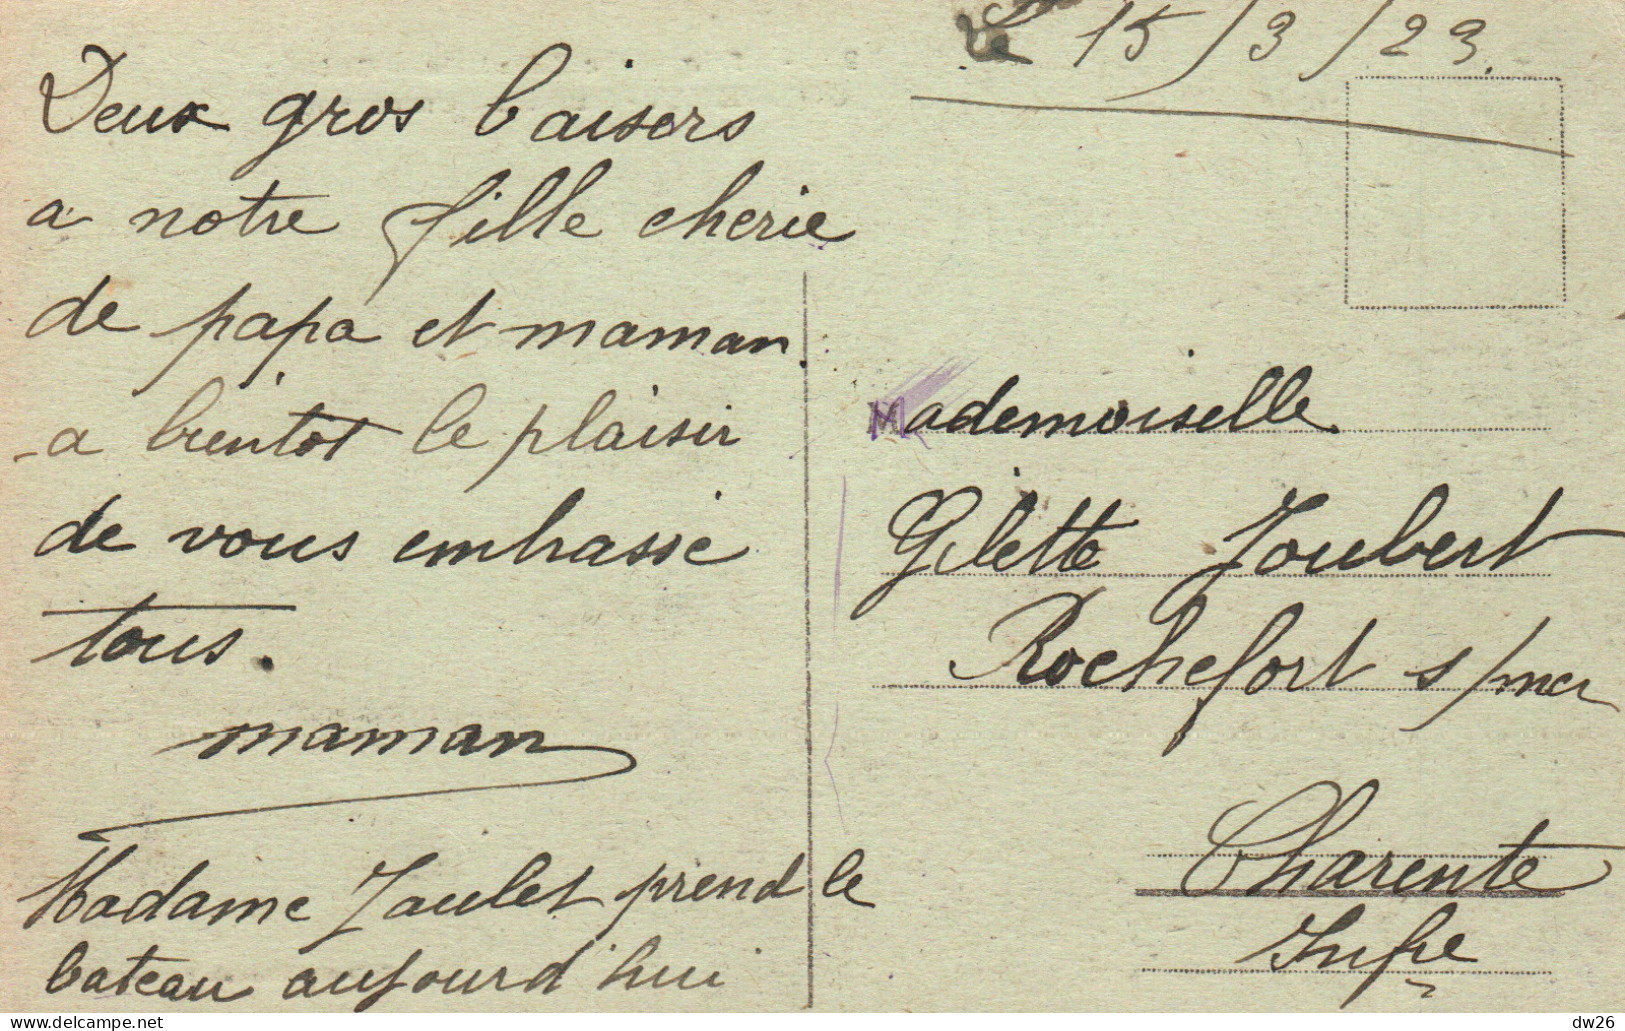 Le 15/3/23.
Deux gros baisers
a notre fille cherie
de papa et maman.
a bientot le plaisir
de vous embasse
tous.
maman
Madame Jaulet prend le
bateau aujourd'hui
Mademoiselle
Gilette Joubert
Rochefort s/mer
Charente
Infre
www.delcampe.net
dw26